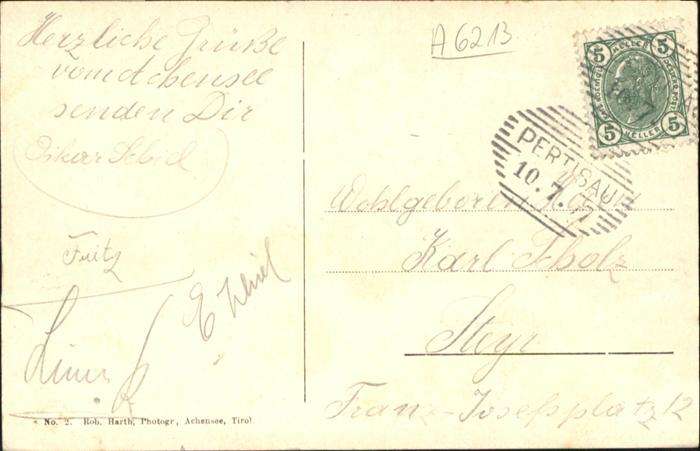 Herzliche Grüße
vom Achensee
senden Dir
Fritz
No. 2. Rob. Harth, Photogr., Achensee, Tirol
A6213
5 HELLER 5
5 HELLER 5
PERTISAU
10.7.
Wohlgeboren
Karl
Steyr
Franz-Josefsplatz 12